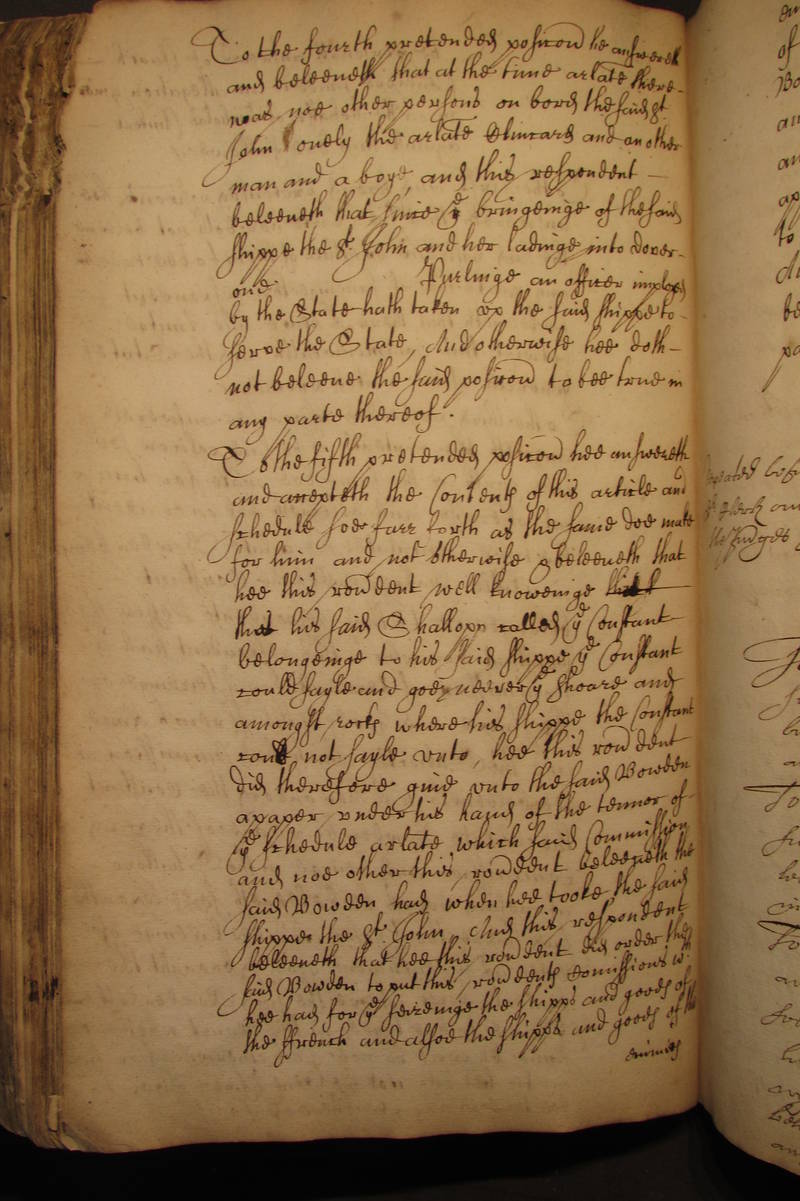 To the fourth pretended posicon he answereth
and beleeveth that at the time arlate there
was noe other persons on bord the said St
John onely the arlate and another
man and a boye, and this respondent
beleeveth that since ye bringeinge of the said
shippe the St John and her ladinge into dover
one Purlinge an officer imployed
by the State hath taken up the said shippe to
serve the State, And otherwise hee doth
not beleeve the said posicon to bee true in
any parte thereof.
To the fifth pretended posicon hee answereth
and accepteth the Contents of this article and
schedule soe farr forth as the same doe make
for him and not otherwise & beleeveth that
hee this rondent well knoweinge
that his said Shallopp called ye Constant
belongeinge to his said shippe ye Constant
could sayle and goe neerer ye shoare and
amongst rocks where his shippe the Constant
could not sayle unto, hee this rondent
did therefore give unto the said Bowden
a paper under his hand of the tennor of
ye schedule arlate which said Commission
and noe other this rondent beleeveth the
said Bowden had when hee tooke the said
shippe the St John, And this respondent
beleeveth that hee this rondent did order the
said Bowden to put this rondents comissions
hee had for ye seizeinge the shipps and goods of
the ffrench and alsoe the shipps and goods of the
enimies
of
to
be
the Judges
To
To